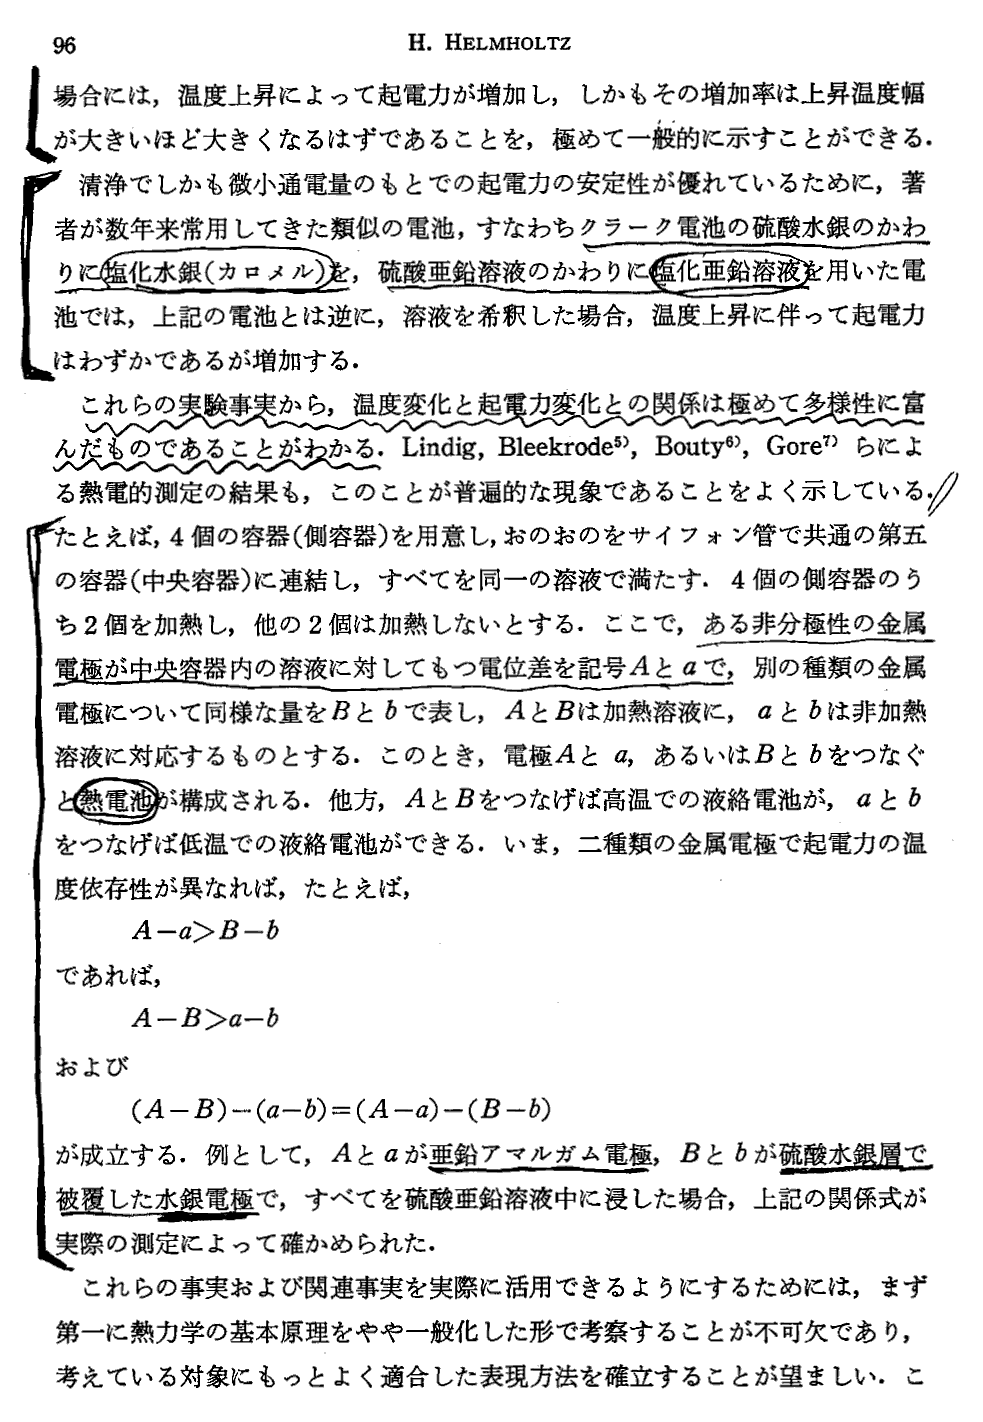 96
H. HELMHOLTZ
場合には，温度上昇によって起電力が増加し，しかもその増加率は上昇温度幅
が大きいほど大きくなるはずであることを，極めて一般的に示すことができる．
清浄でしかも微小通電量のもとでの起電力の安定性が優れているために，著
者が数年来常用してきた類似の電池，すなわちクラーク電池の硫酸水銀のかわ
りに塩化水銀(カロメル)を，硫酸亜鉛溶液のかわりに塩化亜鉛溶液を用いた電
池では，上記の電池とは逆に，溶液を希釈した場合，温度上昇に伴って起電力
はわずかであるが増加する．
これらの実験事実から，温度変化と起電力変化との関係は極めて多様性に富
んだものであることがわかる．Lindig, Bleekrode⁵⁾, Bouty⁶⁾, Gore⁷⁾ らによ
る熱電的測定の結果も，このことが普遍的な現象であることをよく示している．
たとえば，4個の容器(側容器)を用意し，おのおのをサイフォン管で共通の第五
の容器(中央容器)に連結し，すべてを同一の溶液で満たす．4個の側容器のう
ち2個を加熱し，他の2個は加熱しないとする．ここで，ある非分極性の金属
電極が中央容器内の溶液に対してもつ電位差を記号Aとaで，別の種類の金属
電極について同様な量をBとbで表し，AとBは加熱溶液に，aとbは非加熱
溶液に対応するものとする．このとき，電極Aとa，あるいはBとbをつなぐ
と熱電池が構成される．他方，AとBをつなげば高温での液絡電池が，aとb
をつなげば低温での液絡電池ができる．いま，二種類の金属電極で起電力の温
度依存性が異なれば，たとえば，
A−a>B−b
であれば，
A−B>a−b
および
(A−B)−(a−b)=(A−a)−(B−b)
が成立する．例として，Aとaが亜鉛アマルガム電極，Bとbが硫酸水銀層で
被覆した水銀電極で，すべてを硫酸亜鉛溶液中に浸した場合，上記の関係式が
実際の測定によって確かめられた．
これらの事実および関連事実を実際に活用できるようにするためには，まず
第一に熱力学の基本原理をやや一般化した形で考察することが不可欠であり，
考えている対象にもっとよく適合した表現方法を確立することが望ましい．こ